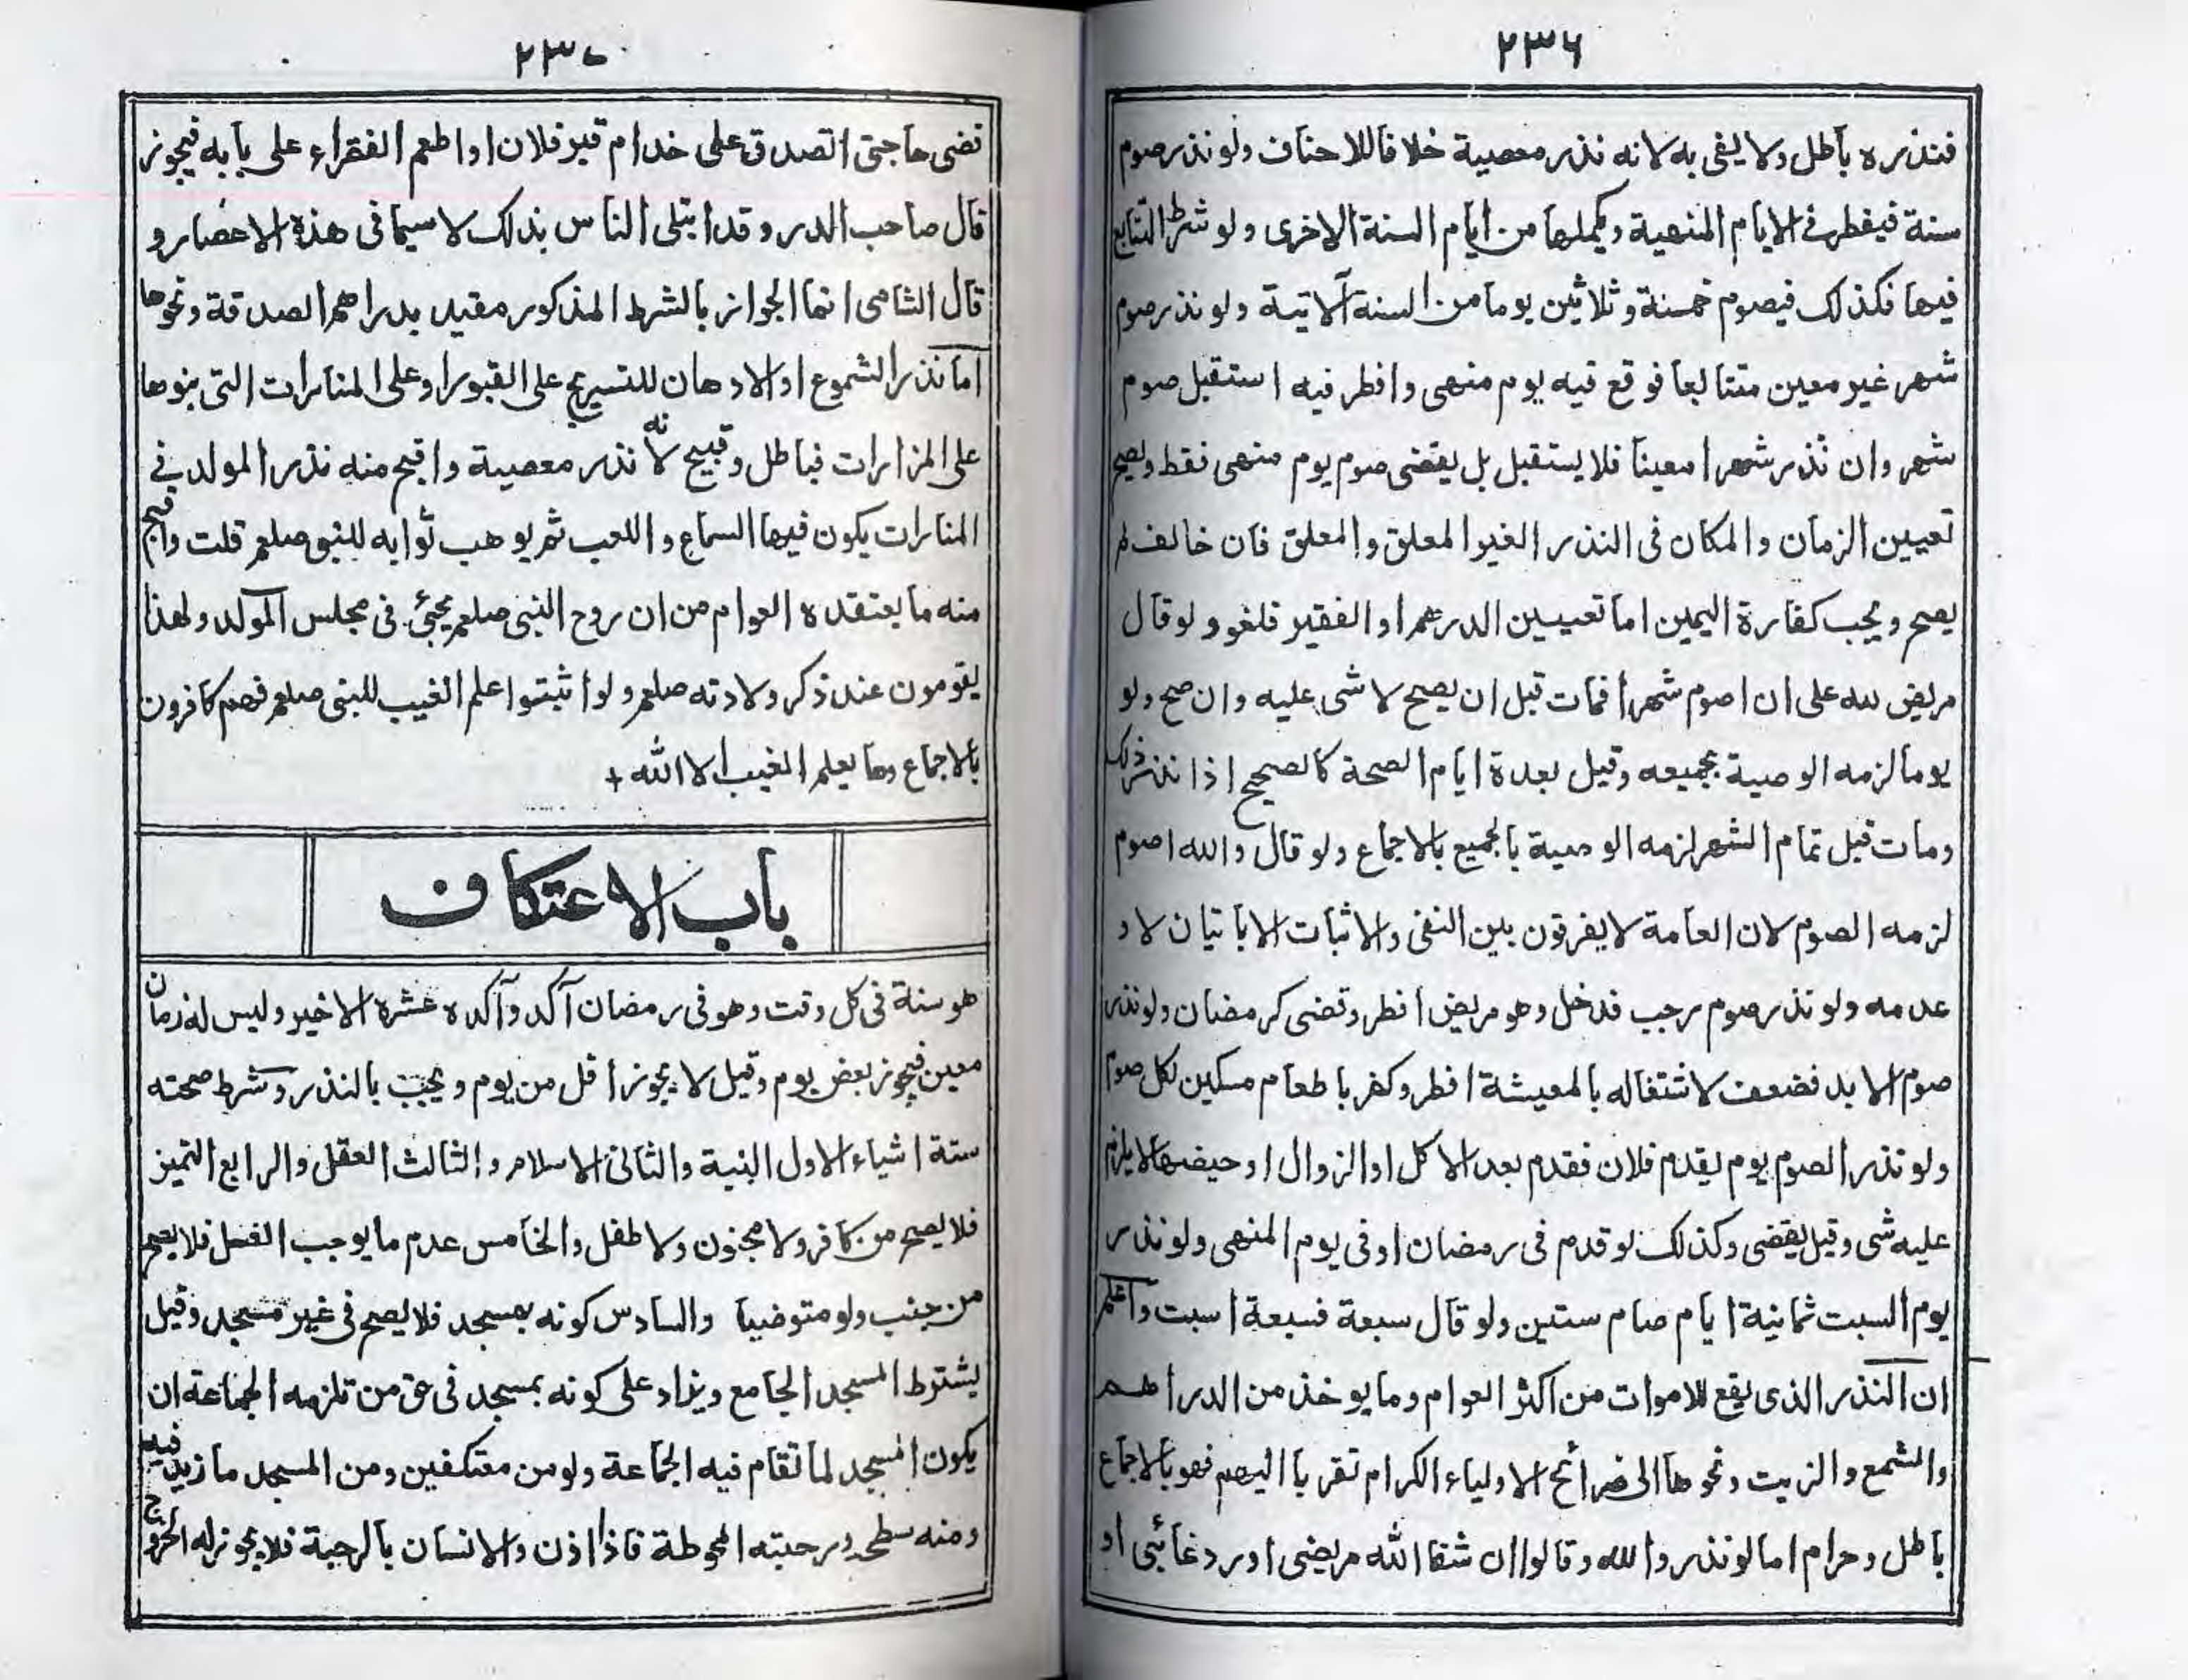 ٢٣٦
فنذره باطل ولا يفى به لانه نذر معصية خلافا للاحناف ولو نذر صوم
سنة فيفطر فى الايام المنهية ويكملها من ايام السنة الاخرى ولو شرط التتابع
فيها فكذلك فيصوم خمسة وثلاثين يوما من السنة الآتية ولو نذر صوم
شهر غير معين متتابعا فوقع فيه يوم منهى وافطر فيه استقبل صوم
شهر وان نذر شهرا معينا فلا يستقبل بل يقضى صوم يوم منهى فقط ويصح
تعيين الزمان والمكان فى النذر الغير المعلق والمعلق فان خالف لم
يصح ويجب كفارة اليمين اما تعيين الدرهم او الفقير فلغو ولو قال
مريض لله على ان اصوم شهرا فمات قبل ان يصح لا شى عليه وان صح ولو
يوما لزمه الوصية بجميعه وقيل بعدة ايام الصحة كالصحيح اذا نذر ذلك
ومات قبل تمام الشهر لزمه الوصية بالجميع بالاجماع ولو قال والله اصوم
لزمه الصوم لان العامة لا يفرقون بين النفى والاثبات الا باتيان لا و
عدمه ولو نذر صوم رجب فدخل وهو مريض افطر وقضى كرمضان ولو نذر
صوم الابد فضعف لاشتغاله بالمعيشة افطر وكفر باطعام مسكين لكل صوم
ولو نذر الصوم يوم يقدم فلان فقدم بعد الاكل او الزوال او حيضها لا يلزم
عليه شى وقيل يقضى وكذلك لو قدم فى رمضان او فى يوم المنهى ولو نذر
يوم السبت ثمانية ايام صام ستين ولو قال سبعة فسبعة اسبت واعلم
ان النذر الذى يقع للاموات من اكثر العوام وما يوخذ من الدراهم
والشمع والزيت ونحوها الى ضرائح الاولياء الكرام تقربا اليهم فهو بالاجماع
باطل وحرام اما لو نذروا لله وقالوا ان شفا الله مريضى او رد غائبى او
٢٣٧
قضى حاجتى اتصدق على خدام قبر فلان او اطعم الفقراء على بابه فيجوز
قال صاحب الدر وقد ابتلى الناس بذلك لا سيما فى هذه الاعصار و
قال الشامى انما الجواز بالشرط المذكور مقيد بدراهم الصدقة ونحوها
اما نذر الشموع او الادهان للتسريج على القبور او على المنارات التى بنوها
على المزارات فباطل وقبيح لانه نذر معصية واقبح منه نذر المولد فى
المنارات يكون فيها السماع واللعب ثم يوهب ثوابه للنبى صلعم قلت واقبح
منه ما يعتقده العوام من ان روح النبى صلعم يجئ فى مجلس المولد ولهذا
يقومون عند ذكر ولادته صلعم ولو اثبتوا علم الغيب للنبى صلعم فهم كافرون
بالاجماع وما يعلم الغيب الا الله +
باب الاعتكاف
هو سنة فى كل وقت وهو فى رمضان آكد وآكده عشره الاخير وليس له زمان
معين فيجوز بعض يوم وقيل لا يجوز اقل من يوم ويجب بالنذر وشرط صحته
ستة اشياء الاول النية والثانى الاسلام والثالث العقل والرابع التميز
فلا يصح من كافر ولا مجنون ولا طفل والخامس عدم ما يوجب الغسل فلا يصح
من جنب ولو متوضيا والسادس كونه بمسجد فلا يصح فى غير مسجد وقيل
يشترط المسجد الجامع ويزاد على كونه بمسجد فى حق من تلزمه الجماعة ان
يكون المسجد لما تقام فيه الجماعة ولو من معتكفين ومن المسجد ما زيد فيه
ومنه سطحه ورحبته المحوطة فاذا اذن والانسان بالرحبة فلا يجوز له الخروج